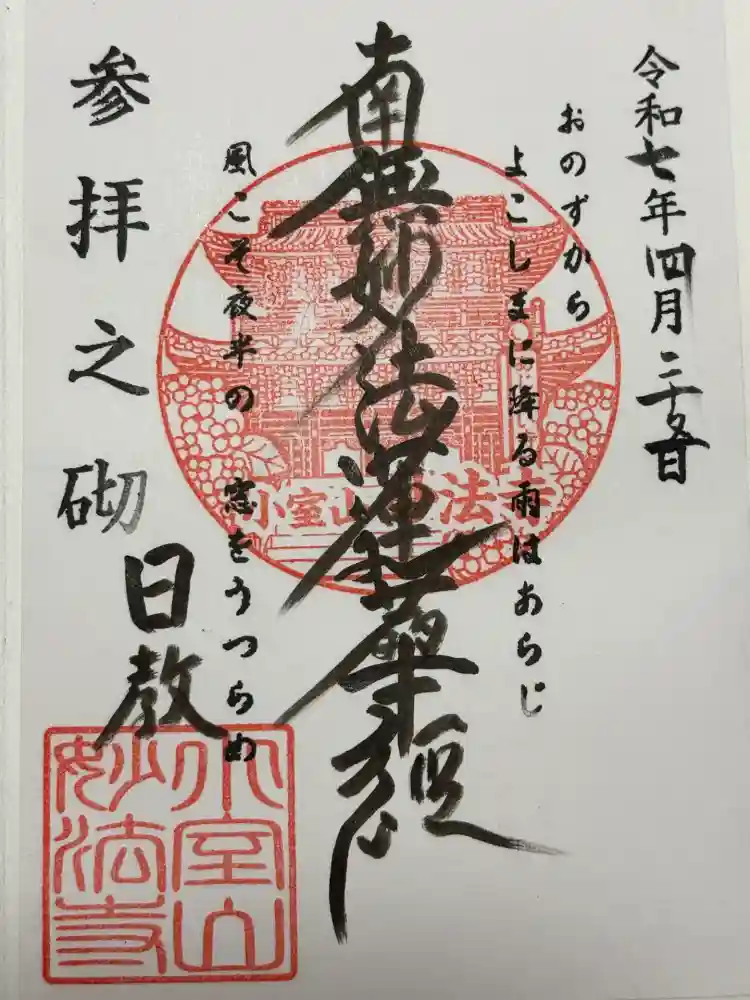 令和七年四月二十九日
おのずから
よこしまに降る雨はあらじ
南無妙法蓮華経
風こそ夜半の窓をうつらめ
参拝之砌
日教
小室山妙法寺
小室山
妙法寺